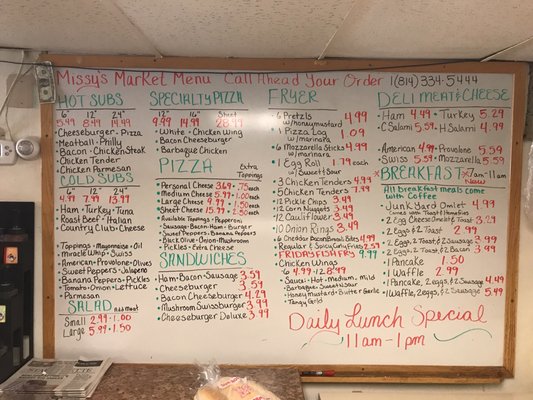 Missy's Market Menu Call Ahead For Your Order 1(814) 334-5444
HOT SUBS
6" 12" 24"
5.49 8.49 14.99
Cheeseburger - Pizza
Meatball - Philly
Bacon - Chicken Steak
Chicken Tender
Chicken Parmesan
COLD SUBS
6" 12" 24"
4.99 7.99 13.99
Ham - Turkey - Tuna
Roast Beef - Italian
Country Club - Cheese
Toppings - Mayonnaise - Oil
Miracle Whip - Swiss
American - Provolone - Olives
Sweet Peppers - Jalapeño
Banana Peppers - Pickles
Tomato - Onion - Lettuce
Parmesan
SALAD
Small 2.99 - 1.00
Large 5.99 - 1.50
SPECIALTY PIZZA
12" 16" Sheet
White - Chicken Wing
Bacon Cheeseburger
Barbeque Chicken
PIZZA Extra Toppings
Personal Cheese 3.69 .75 each
Medium Cheese 5.99 1.00 each
Large Cheese 9.99 1.50 each
Sheet Cheese 15.99 2.50 each
Available Toppings - Pepperoni
Sausage - Bacon - Ham - Burger
Sweet Peppers - Banana Peppers
Black Olive - Onion - Mushroom
Pickles - Extra Cheese
SANDWICHES
Ham - Bacon - Sausage 3.59
Cheeseburger 3.59
Bacon Cheeseburger 4.29
Mushroom Swissburger 3.99
Cheeseburger Deluxe 3.99
FRYER
6 Pretzls 4.99
w/honeymustard
1 Pizza Log 1.09
w/marinara
6 Mozzarella Sticks 4.99
w/marinara
1 Egg Roll 1.79 each
w/Sweet & Sour
3 Chicken Tenders 4.99
5 Chicken Tenders 7.99
12 Pickle Chips 3.49
12 Corn Nuggets 3.49
12 Cauliflower 3.49
10 Onion Rings 3.49
6 Cheddar Bacon Bites 4.99
Regular & Spicy Curly Fries 2.59
FRIDAY FISH & FRIES 9.99
Chicken Wings
6 4.99 12 8.99
Sauce - Hot - Medium - Mild
Barbeque - Sweet & Sour
Honey Mustard - Butter Garlic
Tangy Gold
DELI MEAT & CHEESE
Ham 4.99 Turkey 5.29
C Salami 5.99 H Salami 4.99
American 4.99 Provolone 5.59
Swiss 5.59 Mozzarella 5.59
BREAKFAST 7am-11am
All breakfast meals come
with Coffee
Junk Yard Omlet 4.99
2 Egg Cheese Omlet & Toast 3.29
2 Eggs & Toast 2.99
2 Eggs, 2 Toast & 2 Sausage 3.99
2 Eggs, 2 Toast & 2 Bacon 3.99
1 Pancake 1.50
1 Waffle 2.99
1 Pancake, 2 eggs, & 2 Sausage 4.49
1 Waffle, 2 eggs, & 2 Sausage 5.49
Daily Lunch Special
11am-1pm